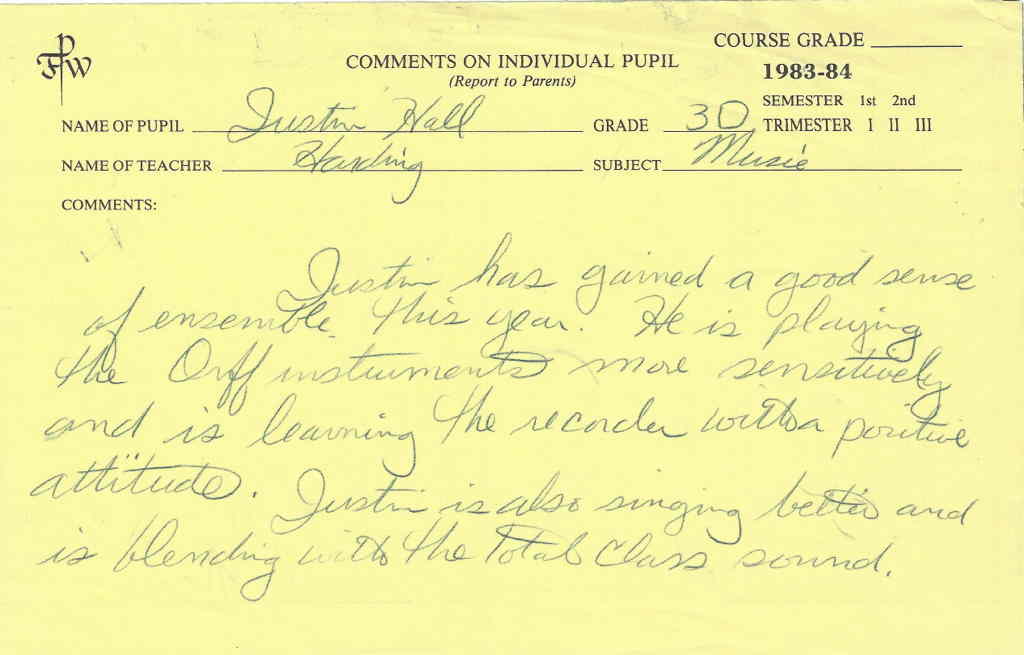 FPW
COURSE GRADE
COMMENTS ON INDIVIDUAL PUPIL
(Report to Parents)
1983-84
SEMESTER 1st 2nd
NAME OF PUPIL Justin Hall GRADE 3D TRIMESTER I II III
NAME OF TEACHER Harding SUBJECT Music
COMMENTS:
Justin has gained a good sense
of ensemble this year. He is playing
the Orff instruments more sensitively
and is learning the recorder with a positive
attitude. Justin is also singing better and
is blending with the total class sound.